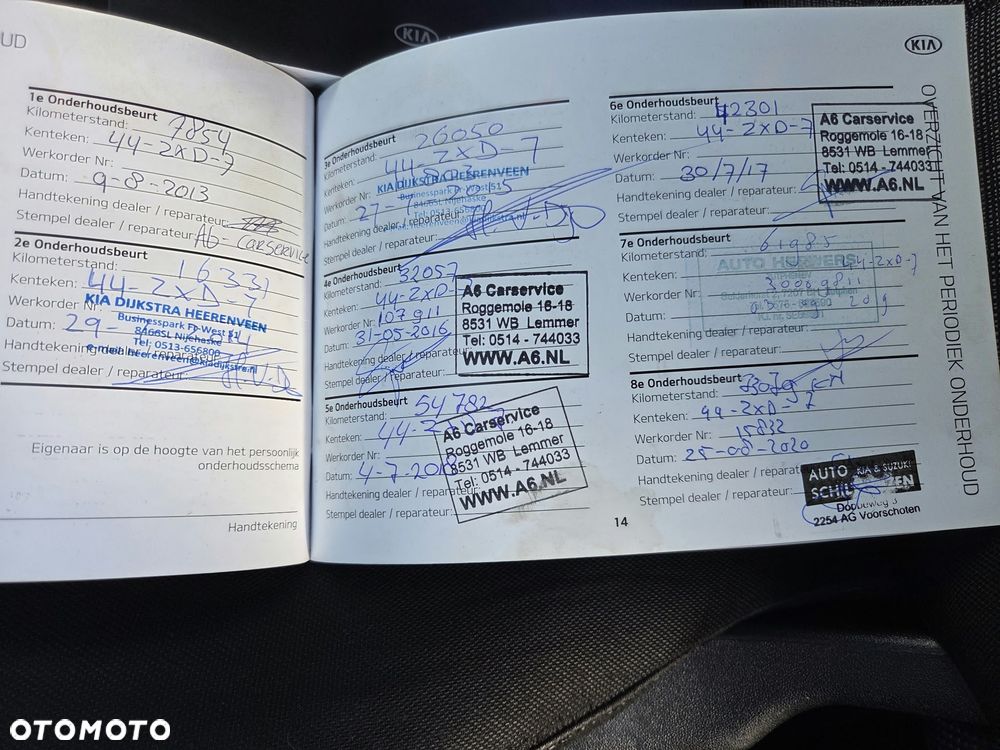 UD
1e Onderhoudsbeurt
Kilometerstand: 7854
Kenteken: 44-ZXD-7
Werkorder Nr:
Datum: 9-8-2013
Handtekening dealer / reparateur:
Stempel dealer / reparateur: A6-CARSERVICE
2e Onderhoudsbeurt
Kilometerstand: 16331
Kenteken: 44-ZXD-7
Werkorder Nr:
KIA DIJKSTRA HEERENVEEN
Businesspark Fr-West 51
8466SL Nijehaske
Tel: 0513-656800
e-mail: heerenveen@kiadijkstra.nl
Datum: 29-
Handtekening dealer / reparateur:
Stempel dealer / reparateur:
Eigenaar is op de hoogte van het persoonlijk
onderhoudsschema
Handtekening
KIA
3e Onderhoudsbeurt
Kilometerstand: 26050
Kenteken: 44-ZXD-7
Werkorder Nr:
KIA DIJKSTRA HEERENVEEN
Businesspark Fr-West 51
8466SL Nijehaske
Tel: 0513-656800
Datum: 27-
Handtekening dealer / reparateur:
Stempel dealer / reparateur:
4e Onderhoudsbeurt
Kilometerstand: 32057
Kenteken: 44-ZXD-7
Werkorder Nr: 107911
Datum: 31-05-2016
Handtekening dealer / reparateur:
Stempel dealer / reparateur:
A6 Carservice
Roggemole 16-18
8531 WB Lemmer
Tel: 0514 - 744033
WWW.A6.NL
5e Onderhoudsbeurt
Kilometerstand: 54782
Kenteken: 44-
Werkorder Nr:
Datum: 4-7-2018
Handtekening dealer / reparateur:
Stempel dealer / reparateur:
A6 Carservice
Roggemole 16-18
8531 WB Lemmer
Tel: 0514 - 744033
WWW.A6.NL
KIA
6e Onderhoudsbeurt
Kilometerstand: 42301
Kenteken: 44-ZXD-7
Werkorder Nr:
Datum: 30/7/17
Handtekening dealer / reparateur:
Stempel dealer / reparateur:
A6 Carservice
Roggemole 16-18
8531 WB Lemmer
Tel: 0514 - 744033
WWW.A6.NL
7e Onderhoudsbeurt
Kilometerstand: 61985
Kenteken: 44-ZXD-7
Werkorder Nr:
Datum:
Handtekening dealer / reparateur:
Stempel dealer / reparateur:
AUTO HERWERS
8e Onderhoudsbeurt
Kilometerstand:
Kenteken: 44-ZXD-7
Werkorder Nr: 15832
Datum: 25-08-2020
Handtekening dealer / reparateur:
Stempel dealer / reparateur:
AUTO KIA & SUZUKI
2254 AG Voorschoten
14
OVERZICHT VAN HET PERIODIEK ONDERHOUD
OTOMOTO